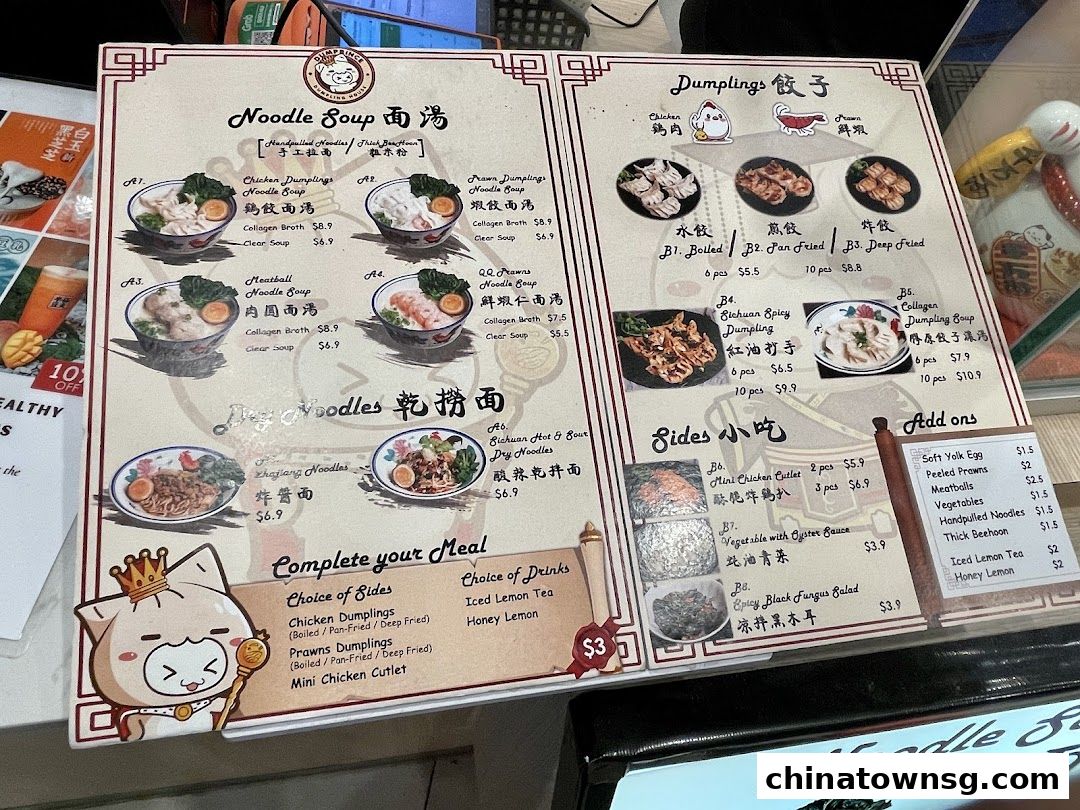 Grab
白玉
黑芝芝
新
10%
OFF
EALTHY
S
the
DUMPRINCE
DUMPLING HOUSE
Noodle Soup 面湯
[Handpulled Noodles / Thick Bee Hoon]
手工拉面 / 粗米粉
A1.
Chicken Dumplings
Noodle Soup
鷄餃面湯
Collagen Broth $8.9
Clear Soup $6.9
A2.
Prawn Dumplings
Noodle Soup
蝦餃面湯
Collagen Broth $8.9
Clear Soup $6.9
A3.
Meatball
Noodle Soup
肉圓面湯
Collagen Broth $8.9
Clear Soup $6.9
A4.
Q.Q. Prawns
Noodle Soup
鮮蝦仁面湯
Collagen Broth $7.5
Clear Soup $5.5
Dry Noodles 乾撈面
Zhajiang Noodles
炸醬面
$6.9
A6.
Sichuan Hot & Sour
Dry Noodles
酸辣乾拌面
$6.9
Complete your Meal
Choice of Sides
Chicken Dumplings
(Boiled / Pan-Fried / Deep Fried)
Prawns Dumplings
(Boiled / Pan-Fried / Deep Fried)
Mini Chicken Cutlet
Choice of Drinks
Iced Lemon Tea
Honey Lemon
$3
Dumplings 餃子
Chicken
鷄肉
Prawn
鮮蝦
水餃
煎餃
炸餃
B1. Boiled / B2. Pan Fried / B3. Deep Fried
6 pcs $5.5
10 pcs $8.8
B4.
Sichuan Spicy
Dumpling
紅油抄手
6 pcs $6.5
10 pcs $9.9
B5.
Collagen
Dumpling Soup
膠原餃子濃湯
6 pcs $7.9
10 pcs $10.9
Sides 小吃
B6.
Mini Chicken Cutlet
酥脆炸鷄扒
2 pcs $5.9
3 pcs $6.9
B7.
Vegetable with Oyster Sauce
蚝油青菜
$3.9
B8.
Spicy Black Fungus Salad
凉拌黑木耳
$3.9
Add ons
Soft Yolk Egg $1.5
Peeled Prawns $2
Meatballs $2.5
Vegetables $1.5
Handpulled Noodles $1.5
Thick Beehoon $1.5
Iced Lemon Tea $2
Honey Lemon $2
Noodle S
chinatownsg.com